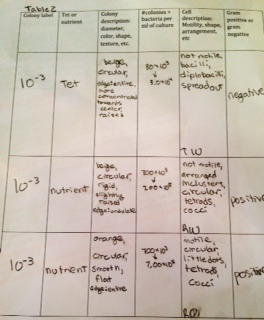 Table2
Colony label
Tet or nutrient
Colony description: diameter, color, shape, texture, etc.
#colonies = bacteria per ml of culture
Cell description: Motility, shape, arrangement, etc
Gram positive or gram negative
10⁻³
Tet
beige,
circular,
edge:entire,
more
concentrated
towards
center,
raised
30×10³
3.0×10⁴
not motile,
bacilli,
diplobacilli,
spreadout
TW
negative
10⁻³
nutrient
beige,
circular,
rigid,
slightly
raised
edge:undulate
200×10³
not motile,
arranged
inclusters,
circular,
tetrads,
cocci
AW
positive
10⁻³
nutrient
orange,
circular,
smooth,
flat
edge:entire
700×10³
7.00×10⁵
motile,
circular
little dots,
tetrads,
cocci
positive